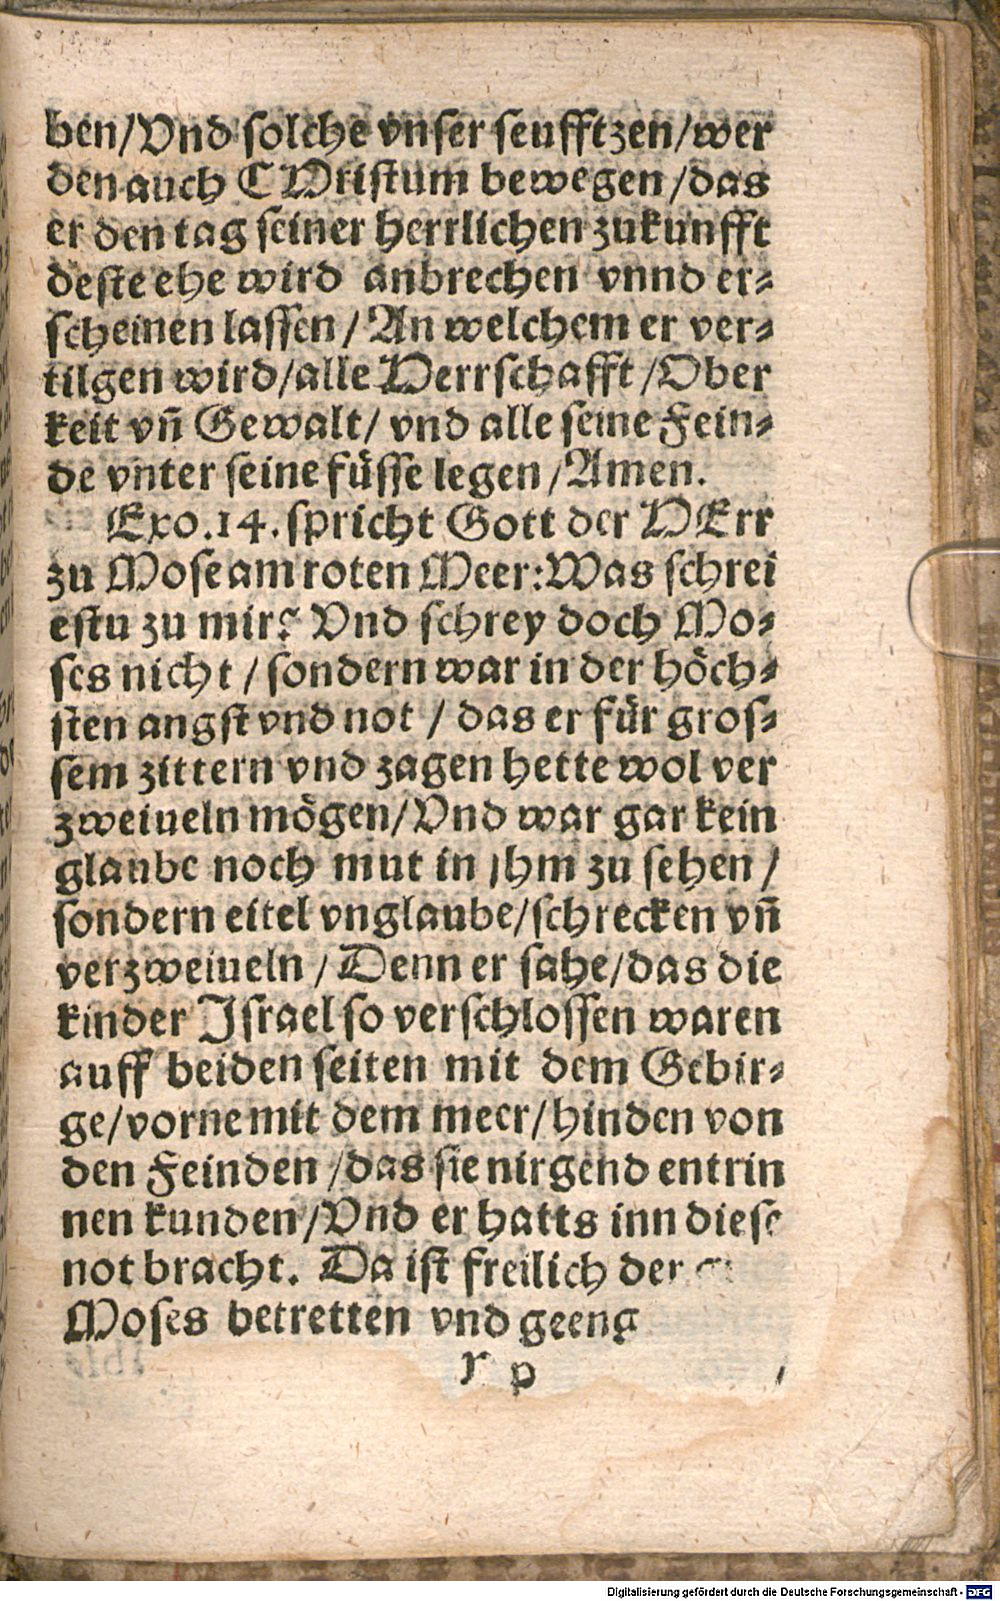 ben/Vnd solche vnser seufftzen/wer
den auch CHristum bewegen/das
er den tag seiner herrlichen zukunfft
deste ehe wird anbrechen vnnd er-
scheinen lassen/An welchem er ver-
tilgen wird/alle Herrschafft/Ober
keit vñ Gewalt/ vnd alle seine Fein-
de vnter seine füsse legen/Amen.
Exo.14. spricht Gott der HErr
zu Mose am roten Meer: Was schrei
estu zu mir? Vnd schrey doch Mo-
ses nicht/sondern war in der höch-
sten angst vnd not / das er für gros-
sem zittern vnd zagen hette wol ver
zweiueln mögen/Vnd war gar kein
glaube noch mut in jhm zu sehen/
sondern eitel vnglaube/schrecken vñ
verzweiueln/Denn er sahe/das die
kinder Israel so verschlossen waren
auff beiden seiten mit dem Gebir-
ge/vorne mit dem meer/hinden von
den Feinden/das sie nirgend entrin
nen kunden/Vnd er hatts inn diese
not bracht. Da ist freilich der
Moses betretten vnd geeng
r p
Digitalisierung gefördert durch die Deutsche Forschungsgemeinschaft - DFG